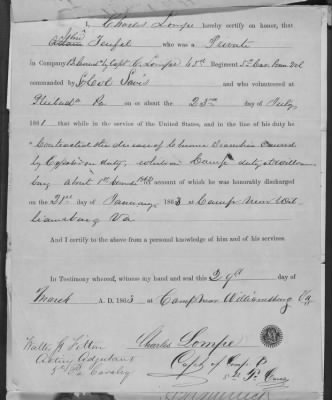 I, Charles Lompe hereby certify on honor, that
Adam Teufel who was a Private
in Company B Comd by Capt C. Lompe 65th Regiment 5th Cav. Penn Vol
commanded by Col and who volunteered at
Philad Pa on or about the 23d day of July
1861 that while in the service of the United States, and in the line of his duty he
Contracted the disease of Chronic Diarrhea caused
by Exposure on duty, while in Camp duty at William
burg about 1st account of which he was honorably discharged
on the 21st day of January 1863 at Camp near Wil-
liamsburg Va
And I certify to the above from a personal knowledge of him and of his services
In Testimony whereof, witness my hand and seal this 29th day of
March A. D. 1863 at Camp near Williamsburg Va
Charles Lompe
Walter
Acting Adjutant
5th Pa Cavalry
Capt of Comp. B
5th Pa Cav